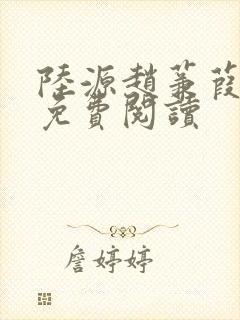 陸源趙蒹葭
免費閱讀
詹婷婷